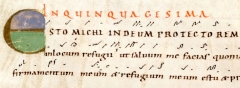 IN QUINQUAGESIMA
ESTO MICHI IN DEUM PROTECTOREM
inlocum refugii ut salvum me facias quoniam
firmamentum meum & refugium meum es tu & p